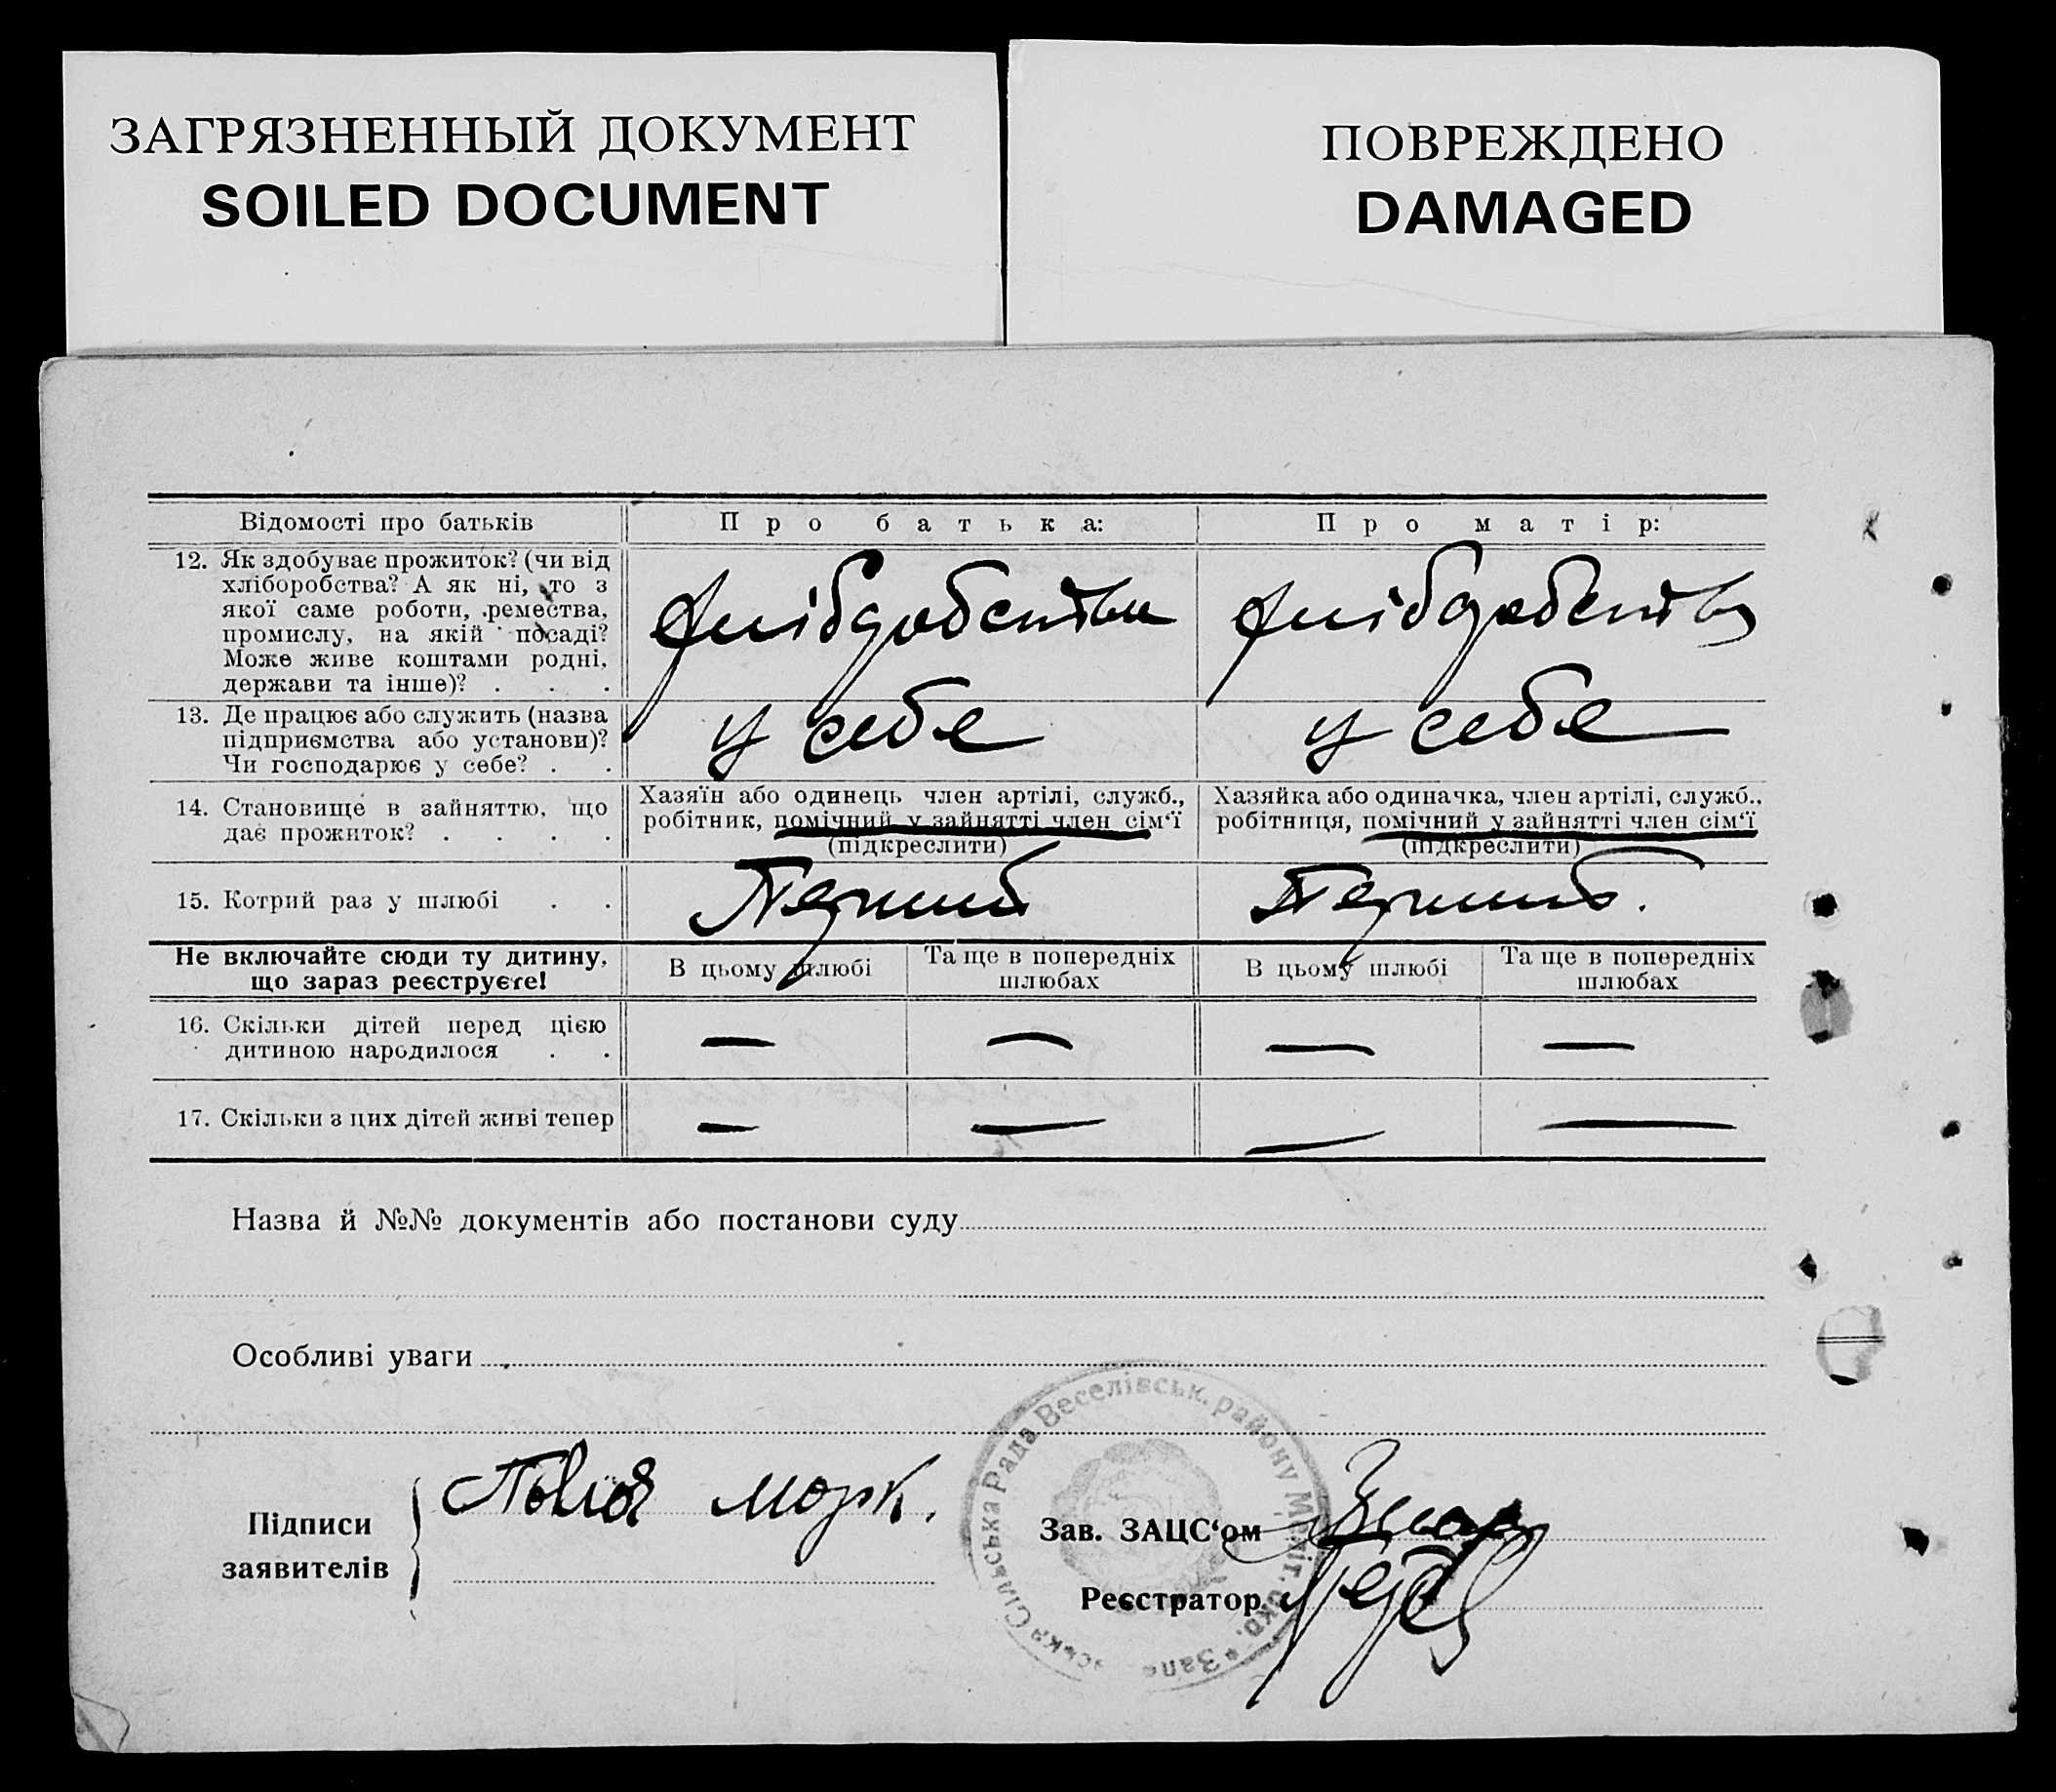 ЗАГРЯЗНЕННЫЙ ДОКУМЕНТ
SOILED DOCUMENT
ПОВРЕЖДЕНО
DAMAGED
Відомості про батьків
Про батька:
Про матір:
12. Як здобуває прожиток? (чи від
хліборобства? А як ні, то з
якої саме роботи, ремества,
промислу, на якій посаді?
Може живе коштами родні,
держави та інше)? . . .
хліборобство
хліборобство
13. Де працює або служить (назва
підприємства або установи)?
Чи господарює у себе? . .
у себе
у себе
14. Становище в зайняттю, що
дає прожиток? . . . .
Хазяїн або одинець член артілі, служб.,
робітник, помічний у зайнятті член сім'ї
(підкреслити)
Хазяйка або одиначка, член артілі, служб.,
робітниця, помічний у зайнятті член сім'ї
(підкреслити)
15. Котрий раз у шлюбі . .
Перший
Перший.
Не включайте сюди ту дитину,
що зараз реєструєте!
В цьому шлюбі
Та ще в попередніх
шлюбах
В цьому шлюбі
Та ще в попередніх
шлюбах
16. Скільки дітей перед цією
дитиною народилося . .
— — — —
17. Скільки з цих дітей живі тепер
— — — —
Назва й №№ документів або постанови суду
Особливі уваги
Підписи
заявителів
Зав. ЗАЦС'ом
Реєстратор
ська Сільська Рада Веселівськ. району Меліт. окр. * Зап